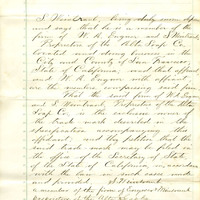 S. Weintraub, being duly sworn deposes
and says that he is a member of the
firm of W. H. Ensyme and S. Weintraub,
Proprietors of the Alta Soap Co.
located and doing business in the
City and County of San Francisco,
State of California, and that affiant
and W. H. Ensyme with affiant
are the members comprising said firm
That the said firm of
and S. Weintraub, Proprietors of the Alta
Soap Co. is the exclusive owner of
the trade mark described in the
specification accompanying this
affidavit, and they petition that the
said trade mark may be filed in
the office of the Secretary of State
of the State of California, in accordance
with the law in such cases made
and provided. S. Weintraub
a member of the firm of Ensyme & Weintraub
proprietors of the Alta Soap Co.